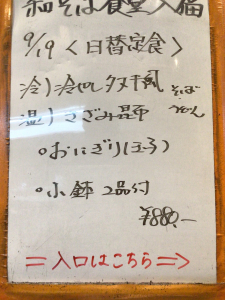 和そば食堂 入福
9/19〈日替定食〉
冷)冷やしタヌキ風 そば
温)きざみ昆布 うどん
○おにぎり(玉子)
○小鉢 2品付
¥880.-
=入口はこちら⇒